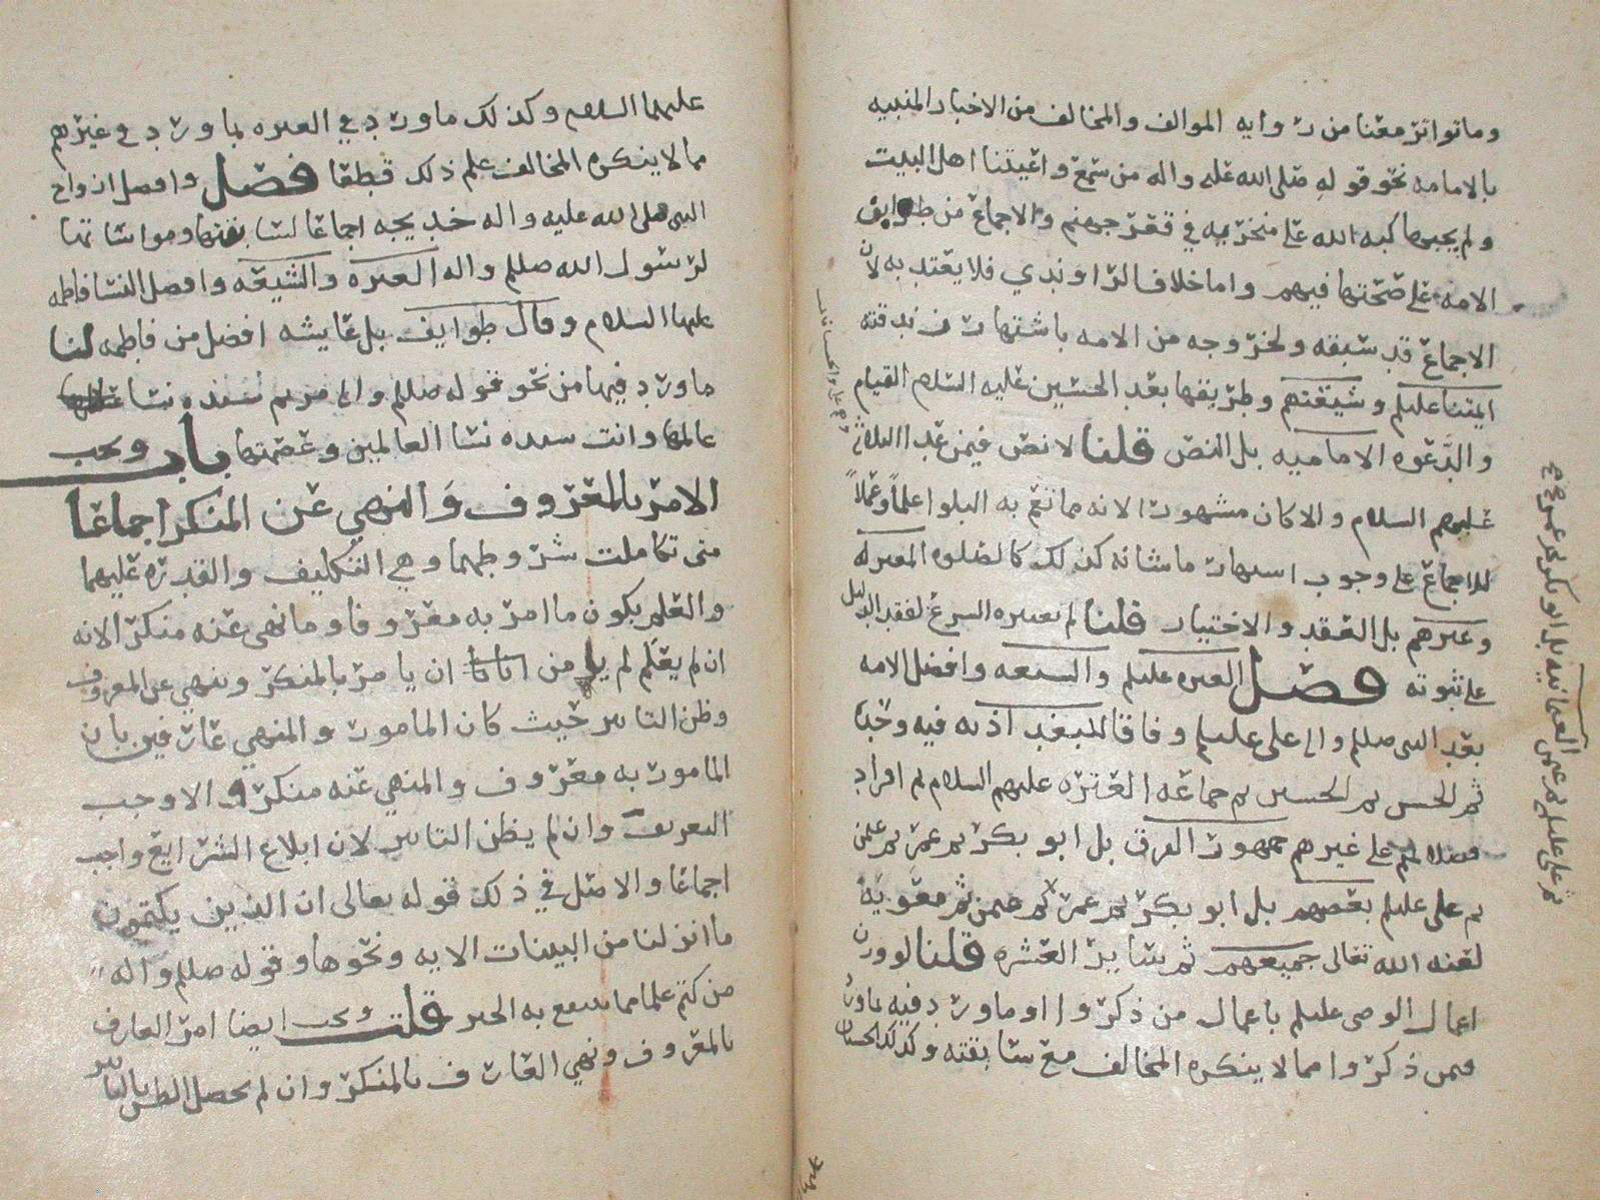 وما تواتر معنا من رواية الموالف والمخالف من الاخبار المنبيه
بالامامه نحو قوله صلى الله عليه واله من سمع واعيتنا اهل البيت
ولم يجبها كبه الله على منخريه في قعر جهنم والاجماع من طوايف
الامه على صحتها فيهم واما خلاف الراوندي فلا يعتد به لان
الاجماع قد سبقه ولخروجه من الامه باشتهار
ايمتنا عليلم وشيعتهم وطريقها بعد الحسين عليه السلام القيام
والدعوه الاماميه بل النص قلنا لا نص فيمن عدا الثلاثه
عليهم السلام والا كان مشهورا لانه مما تعم به البلوا علما وعملا
للاجماع على وجوب اشتهار ما شانه كذلك كالصلوه المعتزله
وغيرهم بل العقد والاختيار قلنا لم يعتبره الشرع لفقد الدليل
على ثبوته فصل العتره عليلم والشيعه وافضل الامه
بعد النبي صللم واله علي عليلم وفاقا للبغداذيه فيه وحده
ثم الحسن ثم الحسين ثم جماعه العتره عليهم السلام ثم افراد
فضلائهم على غيرهم جمهور الفرق بل ابو بكر ثم عمر ثم عثمن
ثم علي عليلم بعضهم بل ابو بكر ثم عمر ثم عثمن ثم معويه
لعنه الله تعالى جميعهم ثم سائر العشره قلنا لو وزن
اعمال الوصي عليلم باعمال من ذكروا او ما ورد فيه بما ورد
فيمن ذكروا مما لا ينكره المخالف مع سابقته وكذلك الحسنان
العثمانيه بل ابو بكر ثم عمر
ثم علي عليلم ثم عثمن
عليهما السلام وكذلك ما ورد في العتره بما ورد في غيرهم
مما لا ينكره المخالف علم ذلك قطعا فصل وافضل ازواج
النبي صلى الله عليه واله خديجه اجماعا لسابقتها ومواساتها
لرسول الله صللم واله العتره والشيعه وافضل النسا فاطمه
عليها السلام وقال طوايف بل عايشه افضل من فاطمه لنا
ما ورد فيها من نحو قوله صللم واله مريم سيده نسا
عالمها وانت سيده نسا العالمين وعصمتها باب ويجب
الامر بالمعروف والنهي عن المنكر اجماعا
متى تكاملت شروطهما وهي التكليف والقدره عليهما
والعلم بكون ما امر به معروفا وما نهى عنه منكرا لانه
ان لم يعلم لم يا من ان يامر بالمنكر وينهي عن المعروف
وظن التاثير حيث كان المامور والمنهي عارفين بان
المامور به معروف والمنهي عنه منكر والا وجب
التعريف وان لم يظن التاثير لان ابلاغ الشرايع واجب
اجماعا والاصل في ذلك قوله تعالى ان الذين يكتمون
ما انزلنا من البينات الايه ونحوها وقوله صللم واله
من كتم علما مما ينفع به الخبر قلت ويجب ايضا امر العارف
بالمعروف ونهي العارف بالمنكر وان لم يحصل الظن بالتاثير